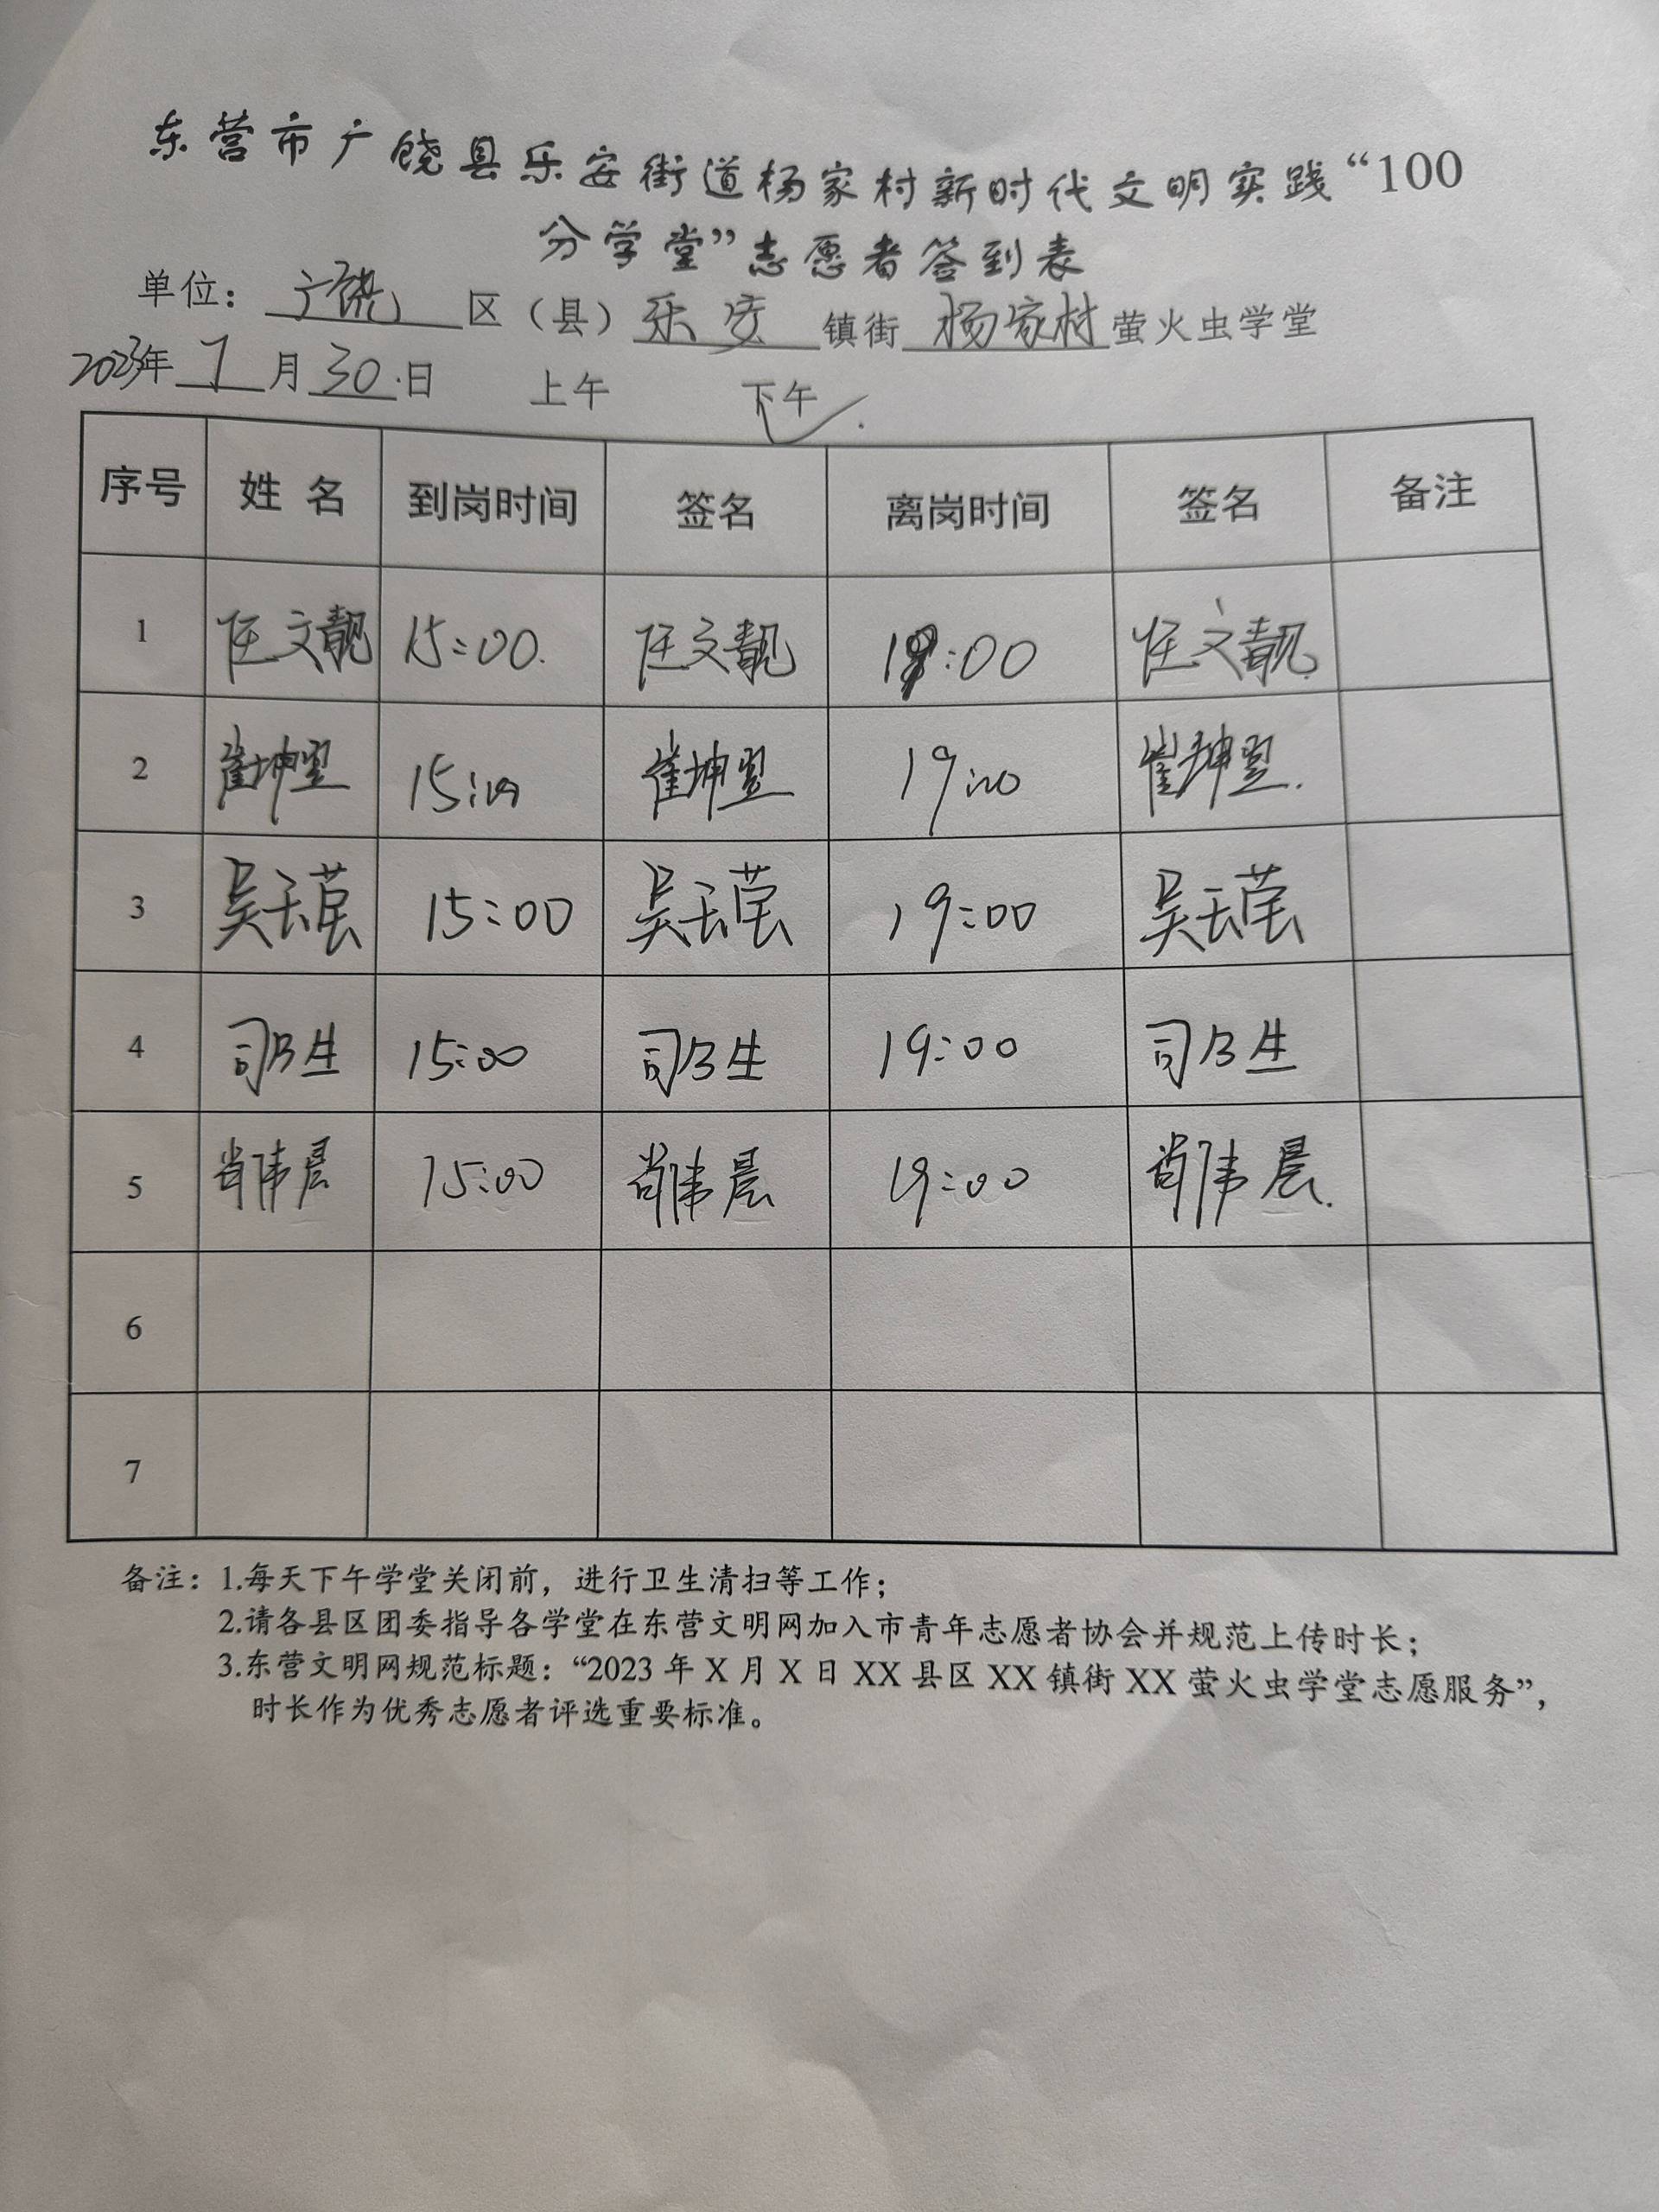 东营市广饶县乐安街道杨家村新时代文明实践“100
分学堂”志愿者签到表
单位：广饶区（县）乐安镇街杨家村萤火虫学堂
2023年7月30日 上午 下午
序号 姓名 到岗时间 签名 离岗时间 签名 备注
1 任文靓 15:00 任文靓 19:00 任文靓
2 崔坤翌 15:00 崔坤翌 19:00 崔坤翌
3 吴天莹 15:00 吴天莹 19:00 吴天莹
4 15:00 19:00
5 肖伟晨 15:00 肖伟晨 19:00 肖伟晨
6
7
备注：1.每天下午学堂关闭前，进行卫生清扫等工作；
2.请各县区团委指导各学堂在东营文明网加入市青年志愿者协会并规范上传时长；
3.东营文明网规范标题：“2023 年 X 月 X 日 XX 县区 XX 镇街 XX 萤火虫学堂志愿服务”，
时长作为优秀志愿者评选重要标准。